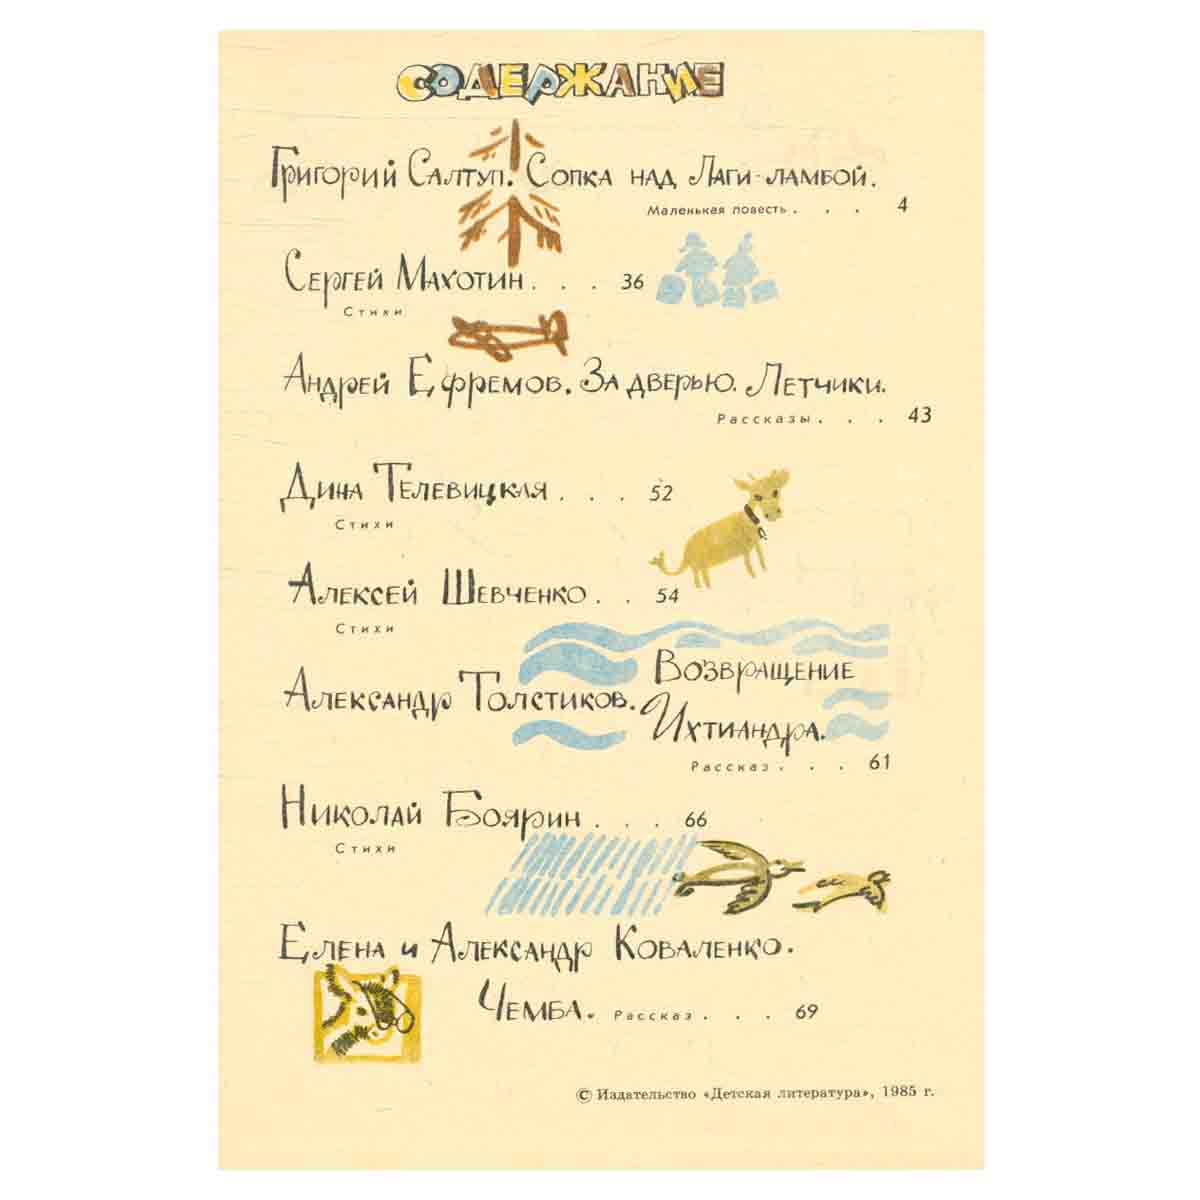 СОДЕРЖАНИЕ
Григорий Салтуп. Сопка над Лаги-ламбой.
Маленькая повесть . . . 4
Сергей Махотин . . . . 36
Стихи
Андрей Ефремов. За дверью. Летчики.
Рассказы . . . 43
Дина Телевицкая . . . 52
Стихи
Алексей Шевченко . . 54
Стихи
Александр Толстиков. Возвращение
Ихтиандра.
Рассказ . . . 61
Николай Боярин . . . 66
Стихи
Елена и Александр Коваленко.
Чемба. Рассказ . . . 69
© Издательство «Детская литература», 1985 г.